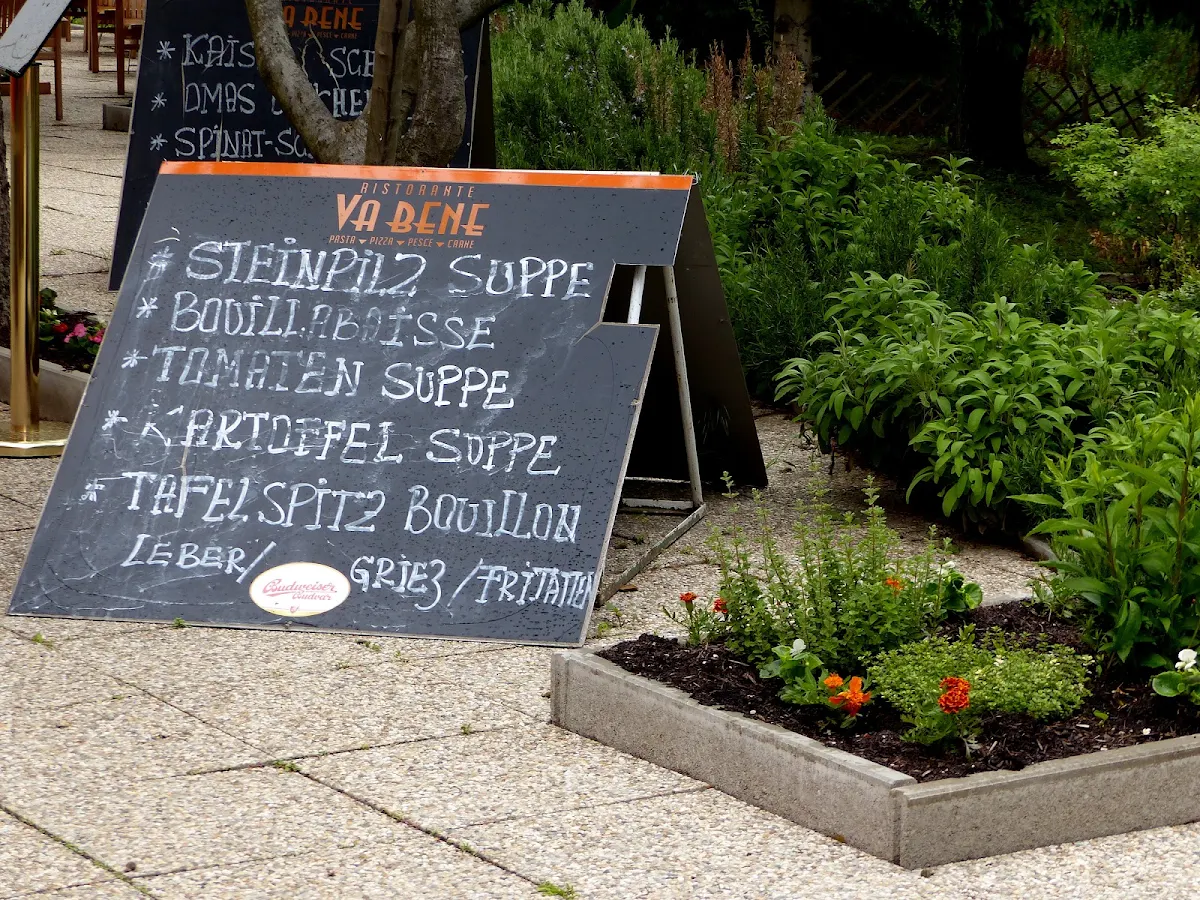 VA BENE
* KAIS
* OMAS
* SPINAT-
RISTORANTE
VA BENE
PASTA ▾ PIZZA ▾ PESCE ▾ CARNE
* STEINPILZ SUPPE
* BOUILLABAISSE
* TOMATEN SUPPE
* KARTOFFEL SUPPE
* TAFELSPITZ BOUILLON
LEBER/ GRIEZ /FRITATTEN
Budweiser
Budvar